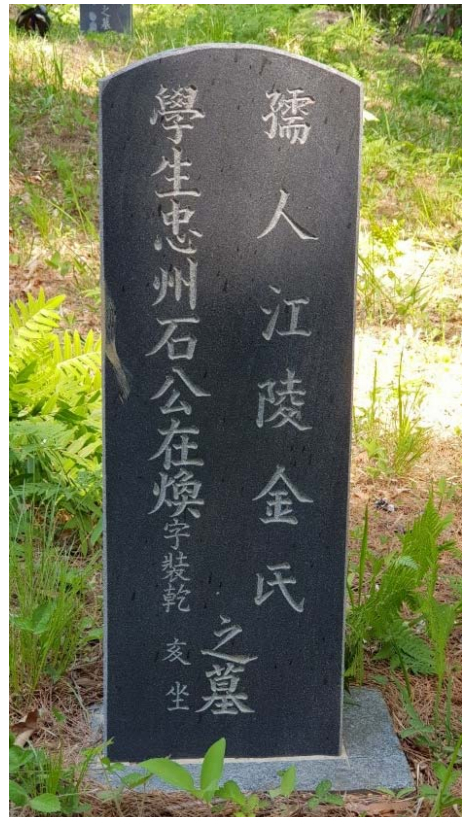 孺人江陵金氏
之墓
學生忠州石公在煥 字裝乾 亥坐